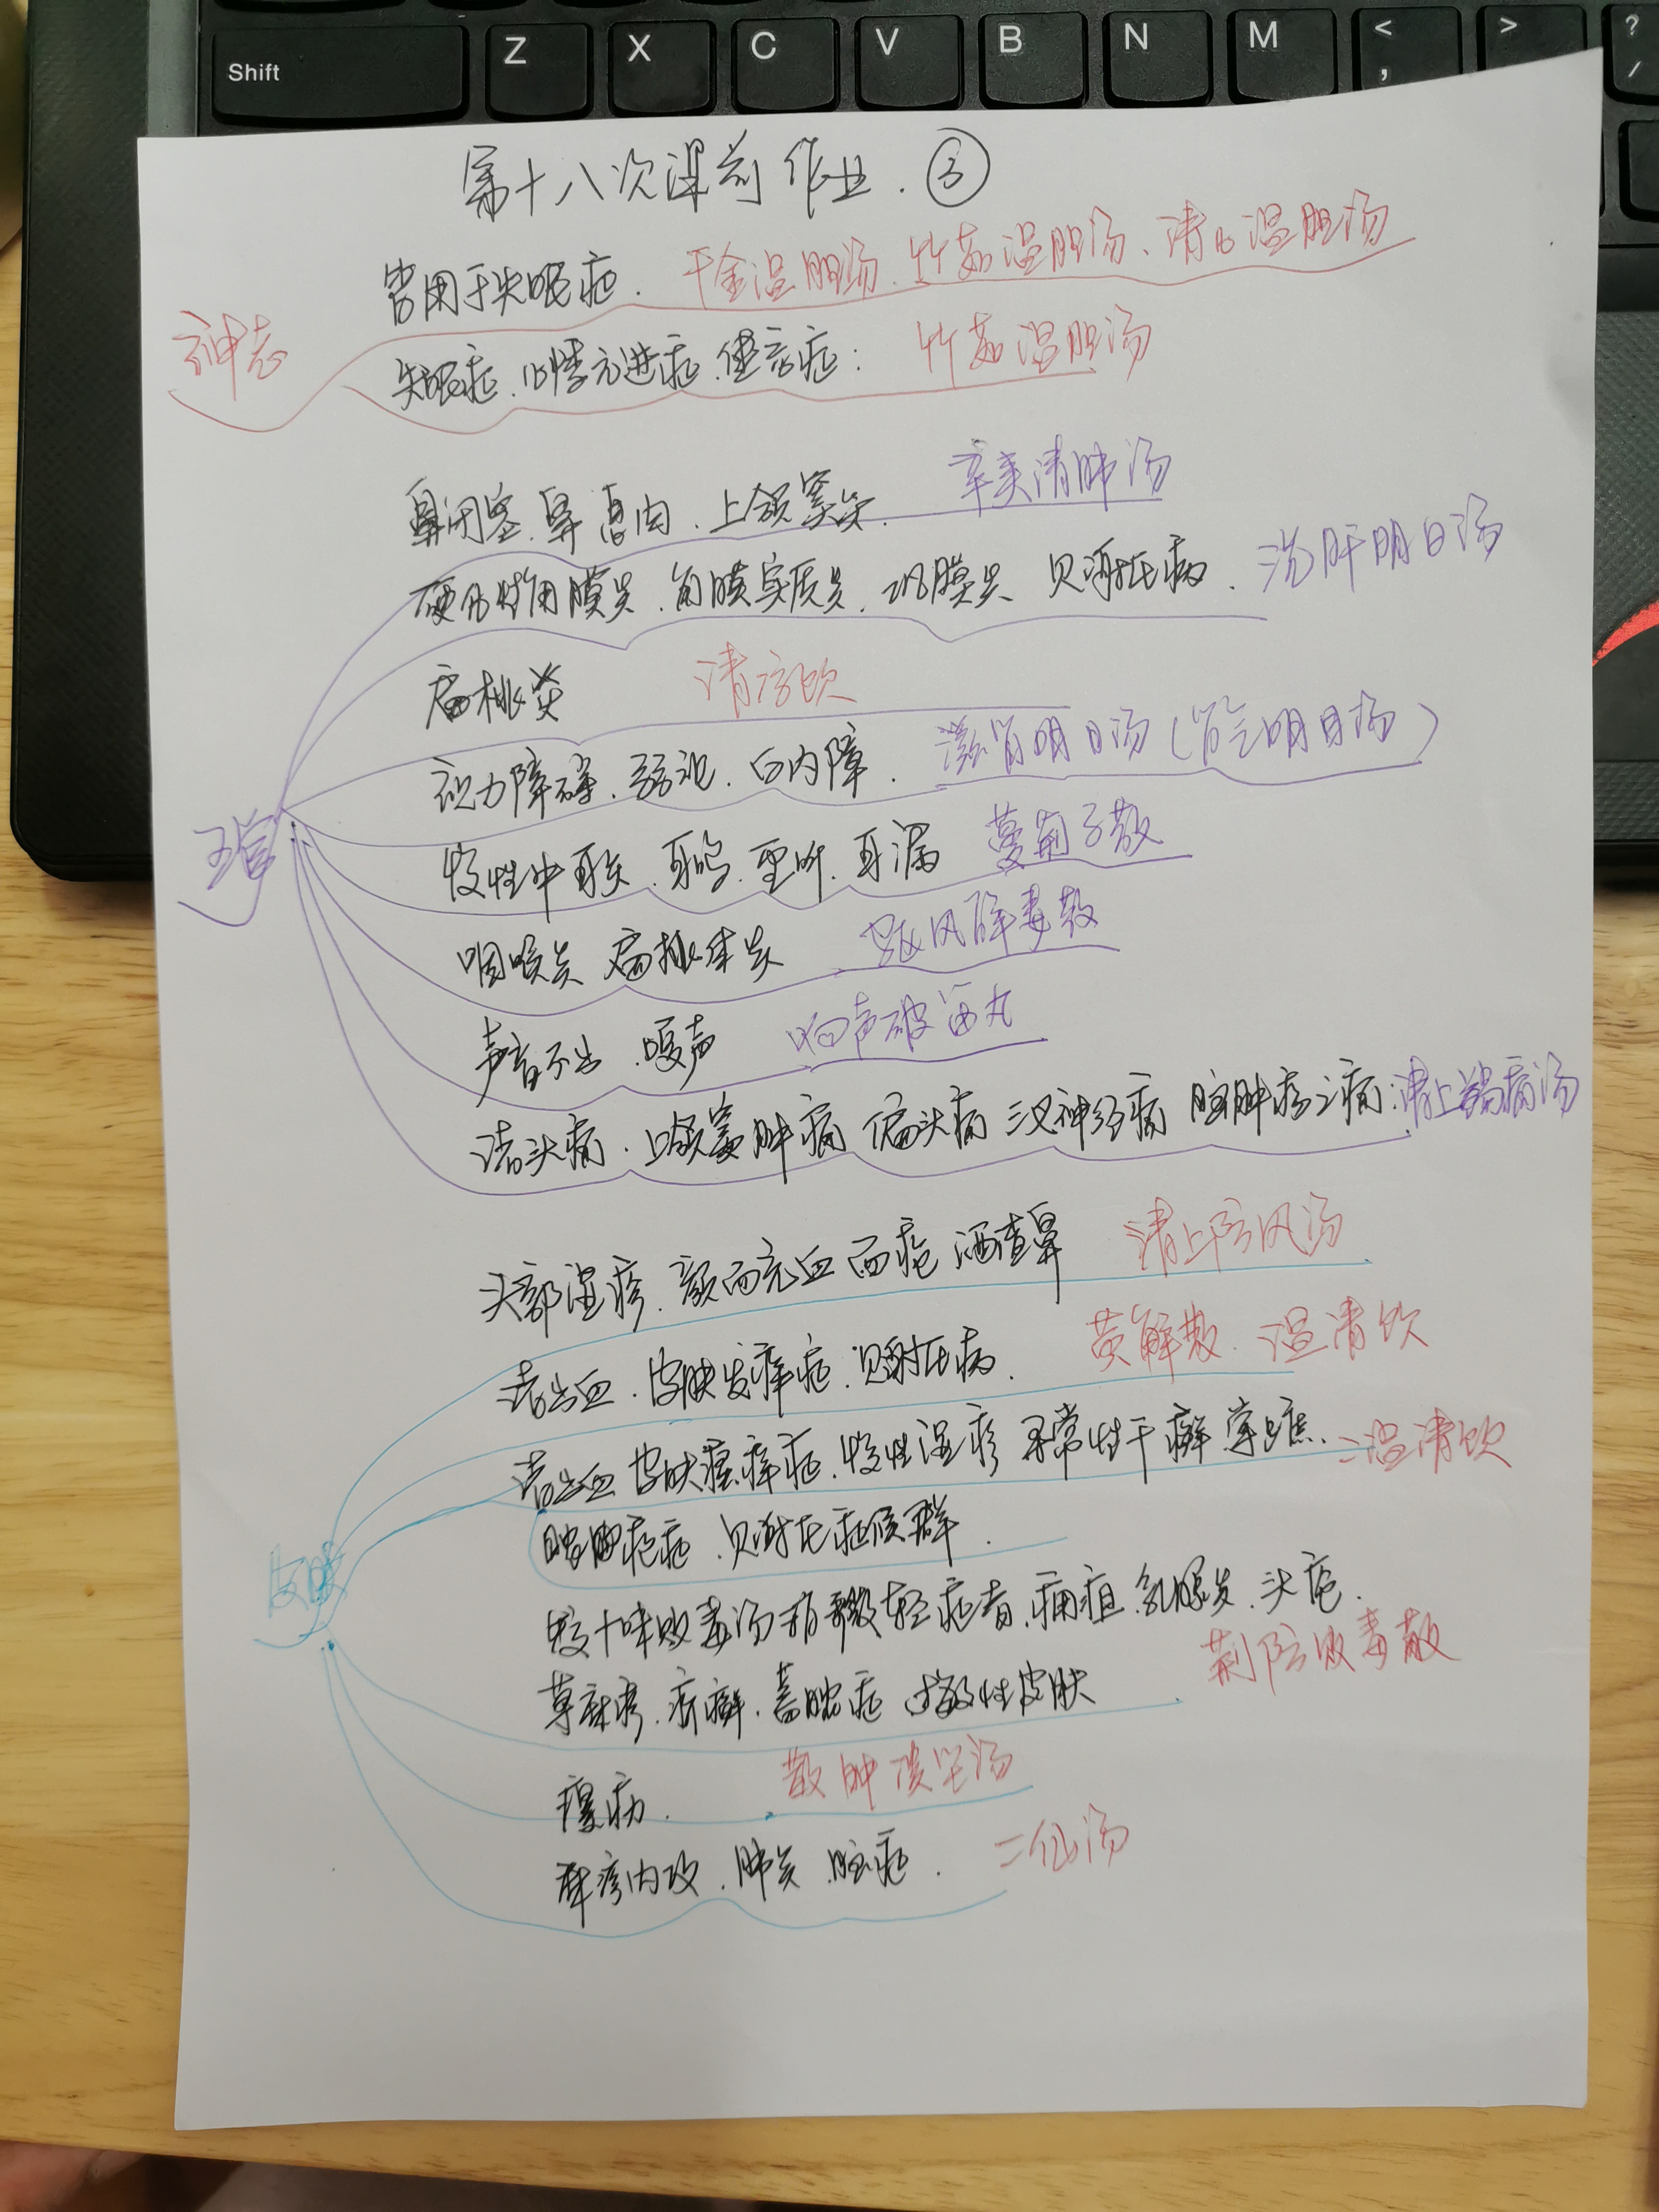 Shift Z X C V B N M < , > ? /
第十八次课前作业.③
神志
皆用于失眠症. 千金温胆汤.竹茹温胆汤、清心温胆汤
失眠症.心悸亢进症.健忘症: 竹茹温胆汤
五官
鼻闭塞.鼻息肉.上颌窦炎. 辛夷清肺汤
角膜炎.角膜实质炎.巩膜炎 贝谢氏病. 洗肝明目汤
扁桃炎 清咽饮
视力障碍.弱视.白内障. 滋肾明目汤(肾气明目汤)
慢性中耳炎.耳鸣.重听.耳漏 蔓荆子散
咽喉炎 扁桃体炎 驱风解毒散
声音不出.嗄声 响声破笛丸
诸头痛.上颌窦肿痛 偏头痛 三叉神经痛 脑肿疡之痛:清上蠲痛汤
皮肤
头部湿疹.颜面充血 面疱 酒渣鼻 清上防风汤
诸出血.皮肤发痒症.贝谢氏病. 黄解散.温清饮
诸出血 皮肤瘙痒症.慢性湿疹 寻常性干癣 掌蹠
脓胞疮症.贝谢氏症候群. 温清饮
较十味败毒汤稍微轻症者.痈疽.乳腺炎.头疮.
荨麻疹.疥癣.蓄脓症 过敏性皮肤 荆防败毒散
瘰疬. 散肿溃坚汤
麻疹内攻.肺炎.脑症. 二仙汤